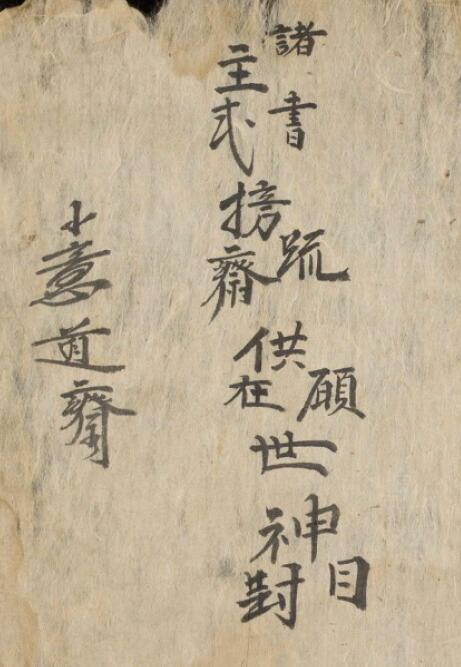 諸書疏願目
主式榜齋供在世神封
小意道齋